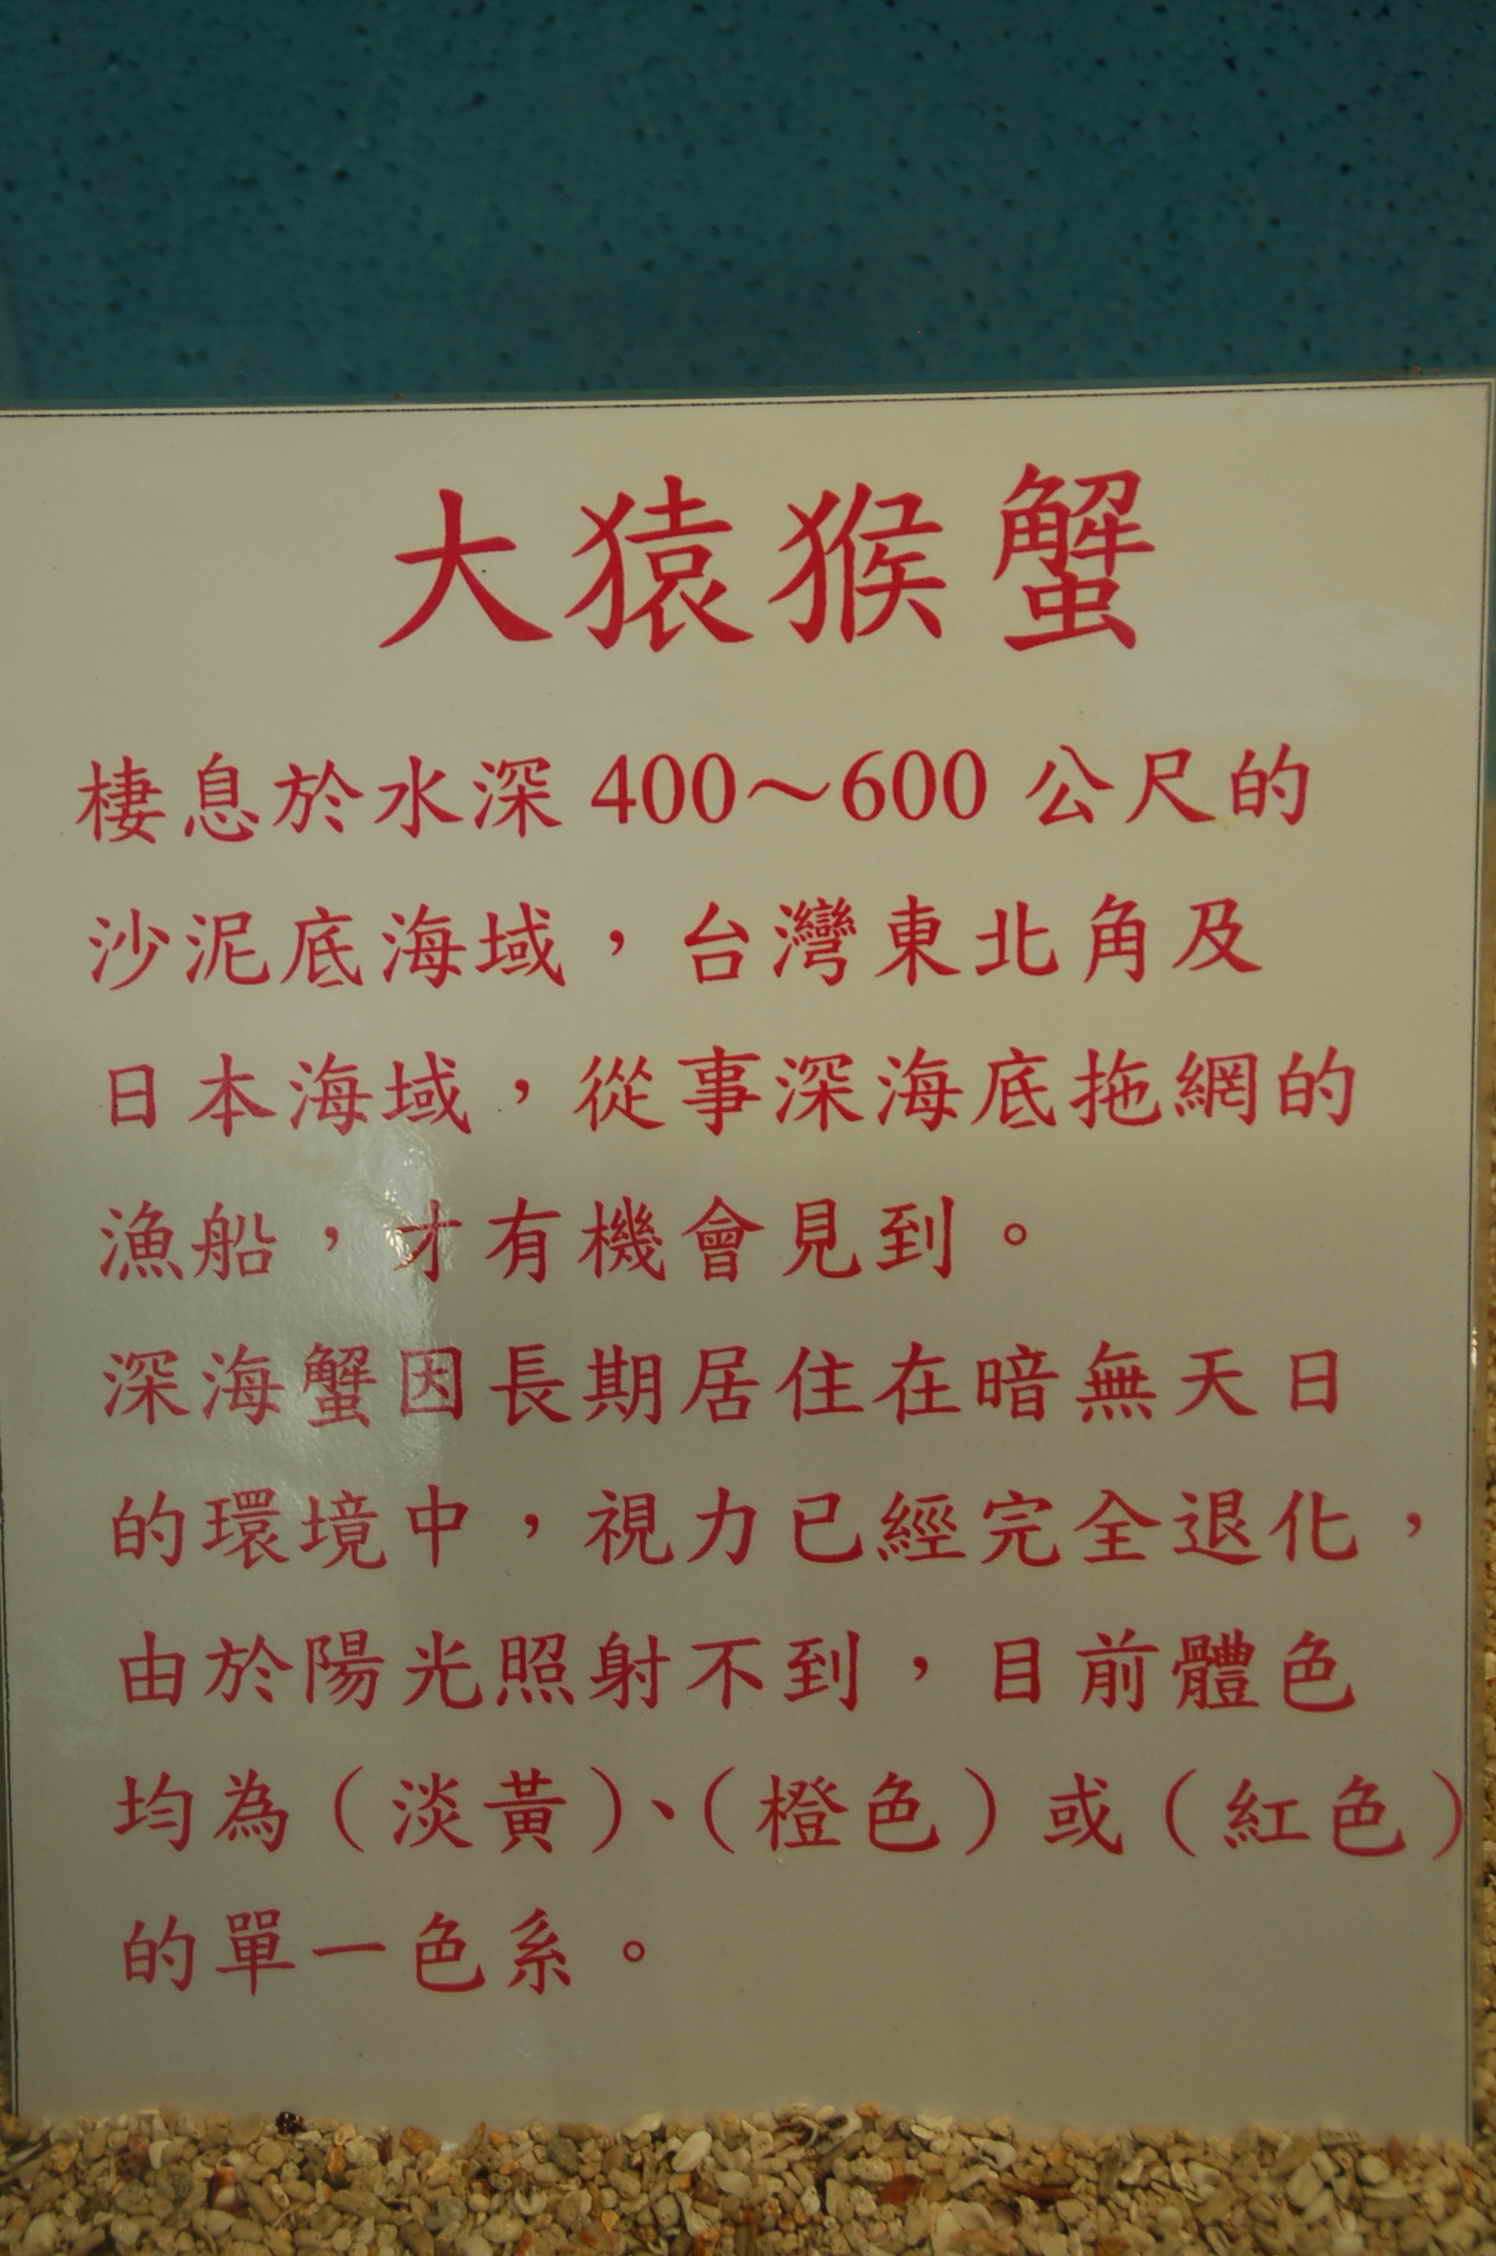 大猿猴蟹
棲息於水深 400～600 公尺的
沙泥底海域，台灣東北角及
日本海域，從事深海底拖網的
漁船，才有機會見到。
深海蟹因長期居住在暗無天日
的環境中，視力已經完全退化，
由於陽光照射不到，目前體色
均為（淡黃）、（橙色）或（紅色）
的單一色系。